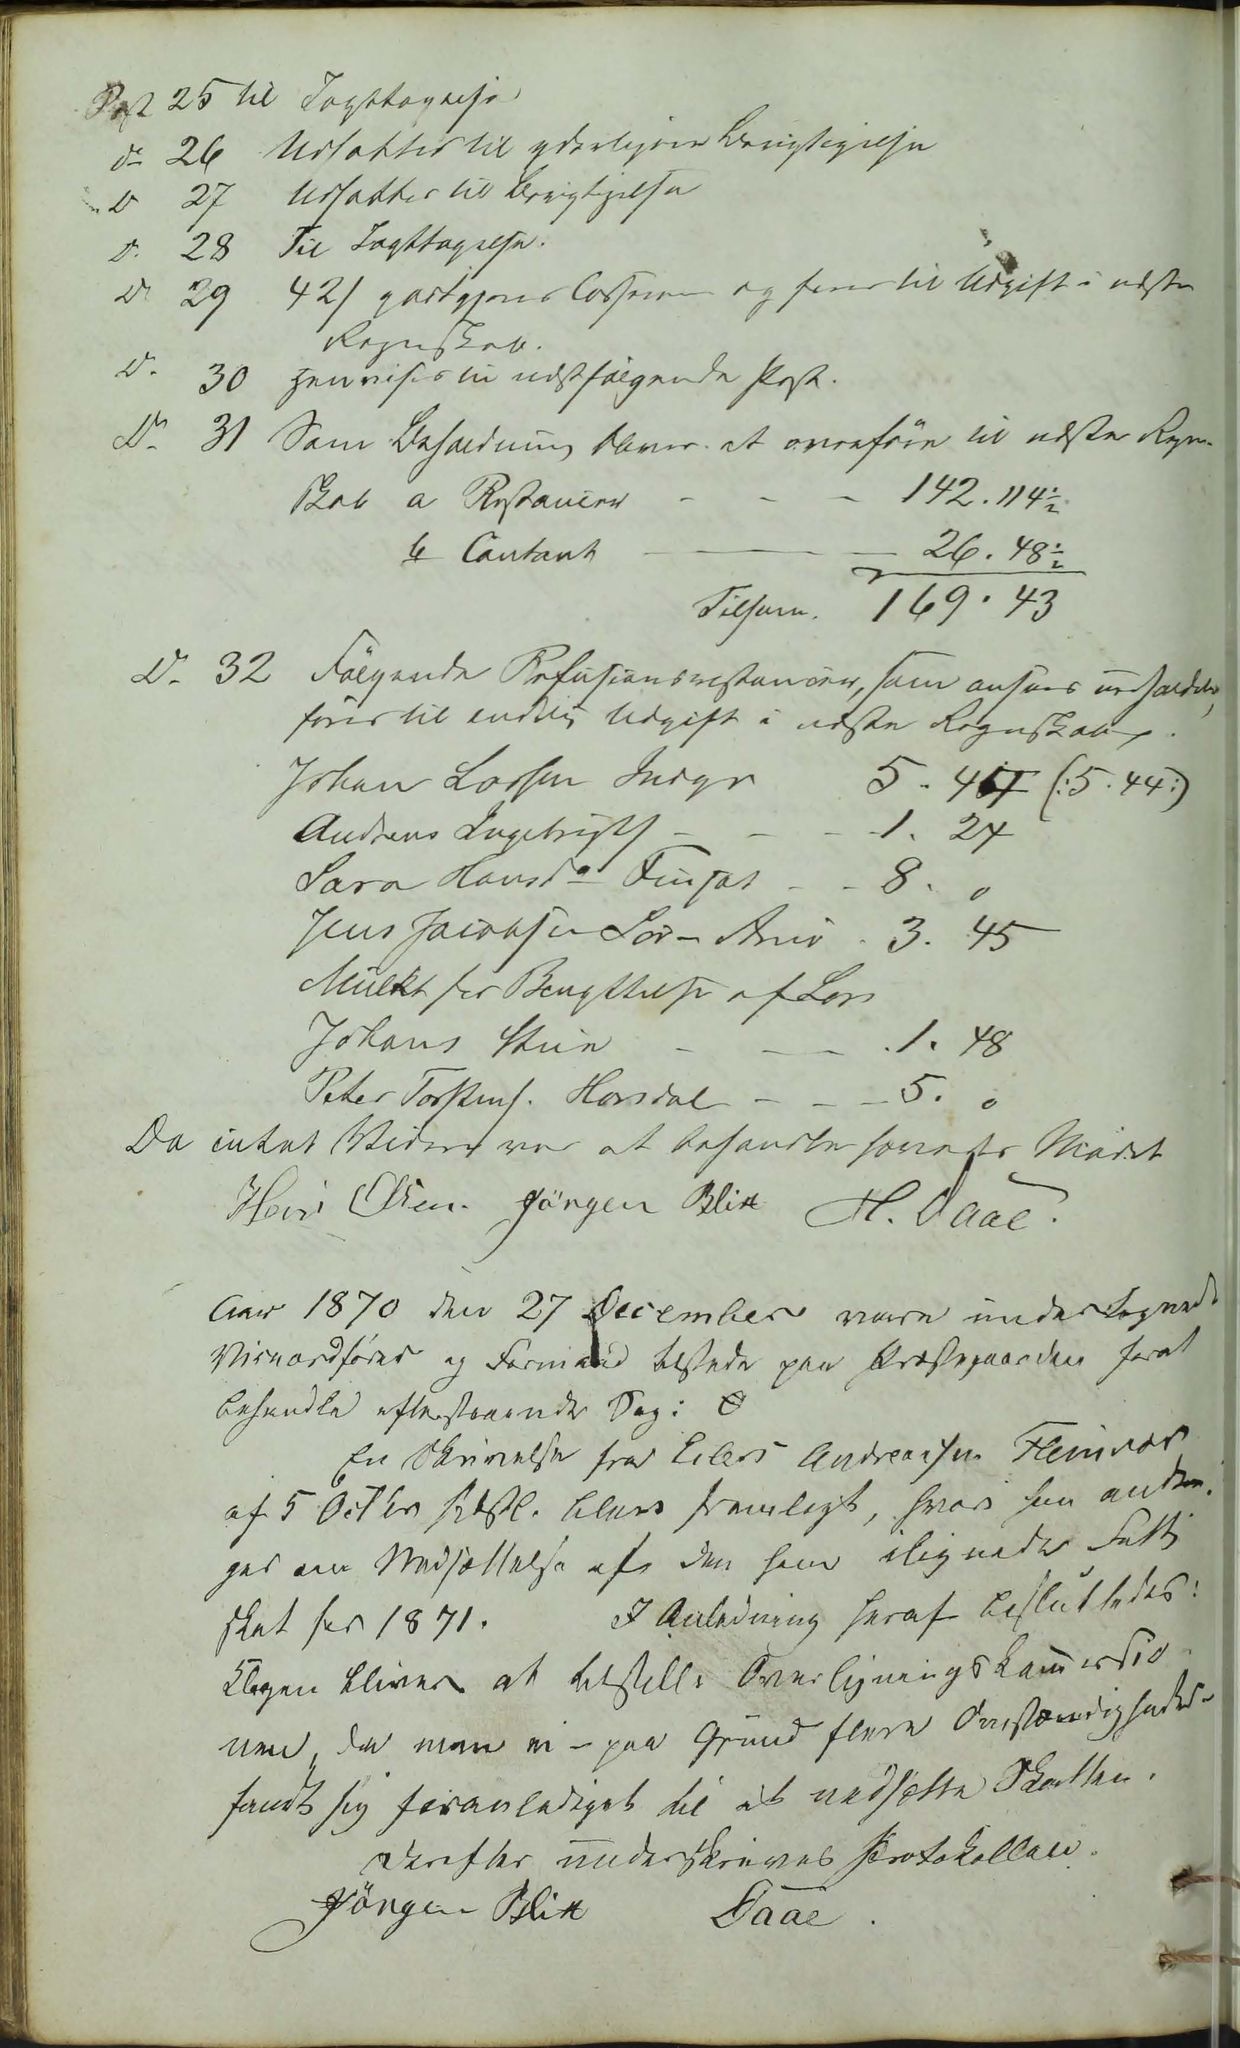 Post 25 til Iagttagelse
do 26 Udsættes til yderligere Berigtigelse
do 27 Udsættes til Berigtigelse
do 28 Til Iagttagelse.
do 29 42 s godtgjøres Cassereren og føres til Udgift i næste
Regnskab.
do 30 henvises til næstfølgende Post.
do 31 Som Beholdning bliver at overføre til næste Regn-
skab a Restancer - - - 142. 114½
b Contant — — 26. 48½
Tilsam. 169. 43
do 32 Følgende Refusionsrestancer, som ansees uerholdelige,
føres til endelig Udgift i næste Regnskab.
Johan Larsen Indyr 5. 44 (: 5. 44 :)
Andreas Ingebrigts - - - 1. 24
Sara Hansda - - 8. 0
Jens Jacobsen Sør-Arnø . 3. 45
Mulkt for Benyttelse af Lars
Johans - — 1. 48
Peter Torstens. Horsdal - - - 5. 0
Da intet Videre var at behandle hævedes Mødet
Hans Olsen. Jörgen Blix H. Daae.
Aar 1870 den 27 December vare undertegnede
Viceordfører og Formænd tilstede paa Præstegaarden forat
behandle efterstaaende Sag:
En Skrivelse fra Eilert Andreassen Fleinvær
af 5 Octbr sidstl. blev fremlagt, hvori han andra-
ger om Nedsættelse af den ham ilignede Fattig
skat for 1871. I Anledning heraf besluttedes:
Klagen bliver at tilstille Overligningskommissio-
nen, da man ei - paa Grund flere Omstændigheder -
fandt sig foranlediget til at nedsætte Skatten.
Derefter underskreves Protokollen.
Jörgen Blix Daae.